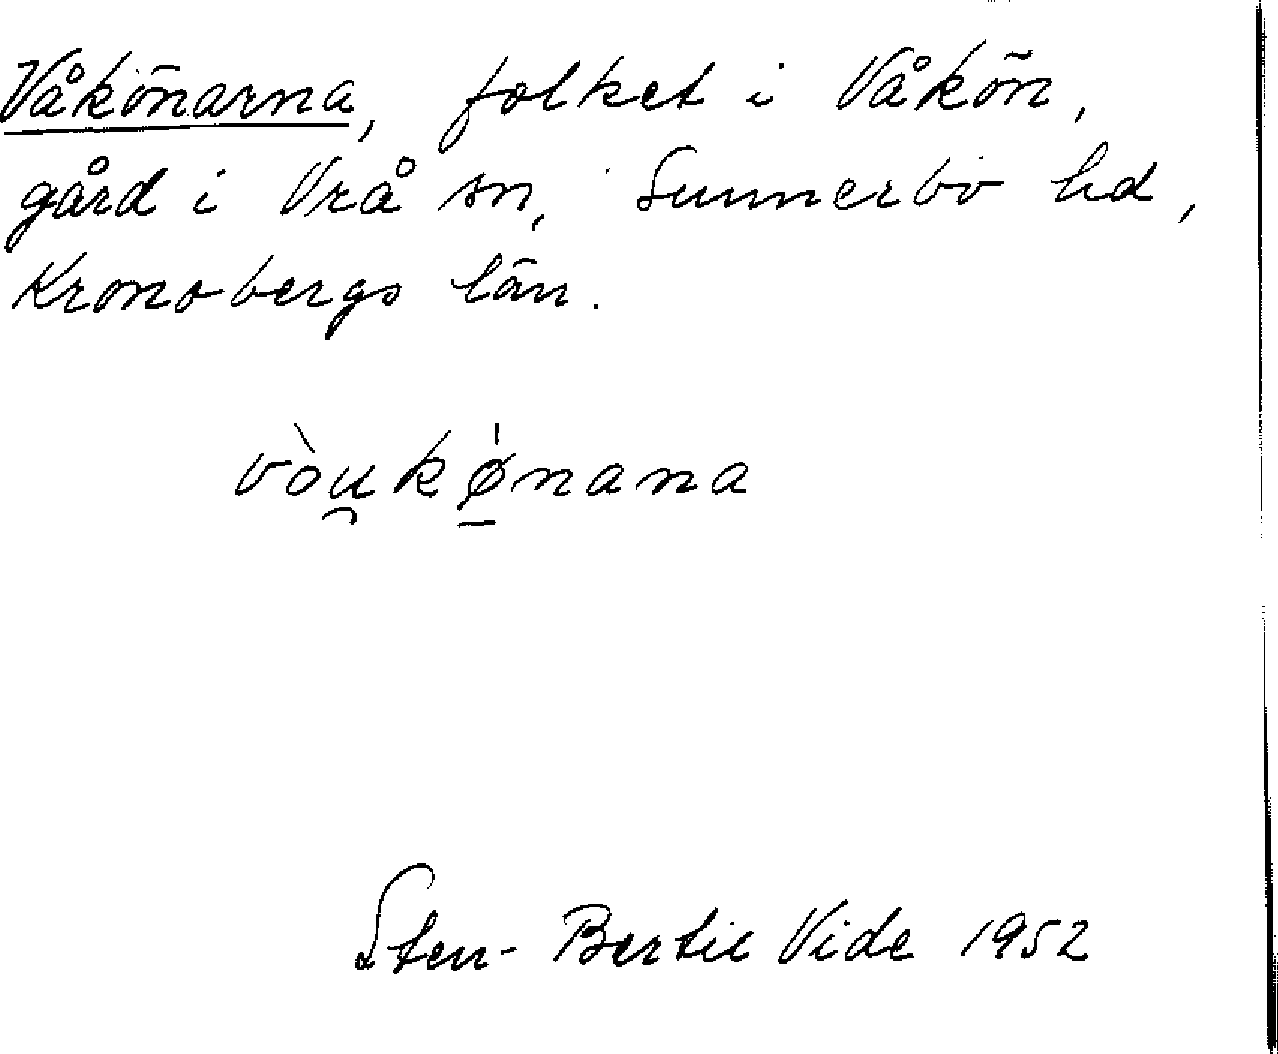 Våkönarna, folket i Våkön,
gård i Vrå sn, Sunnerbo hd,
Kronobergs län.
vòu̯kø̠̍nana
Sten-Bertil Vide 1952